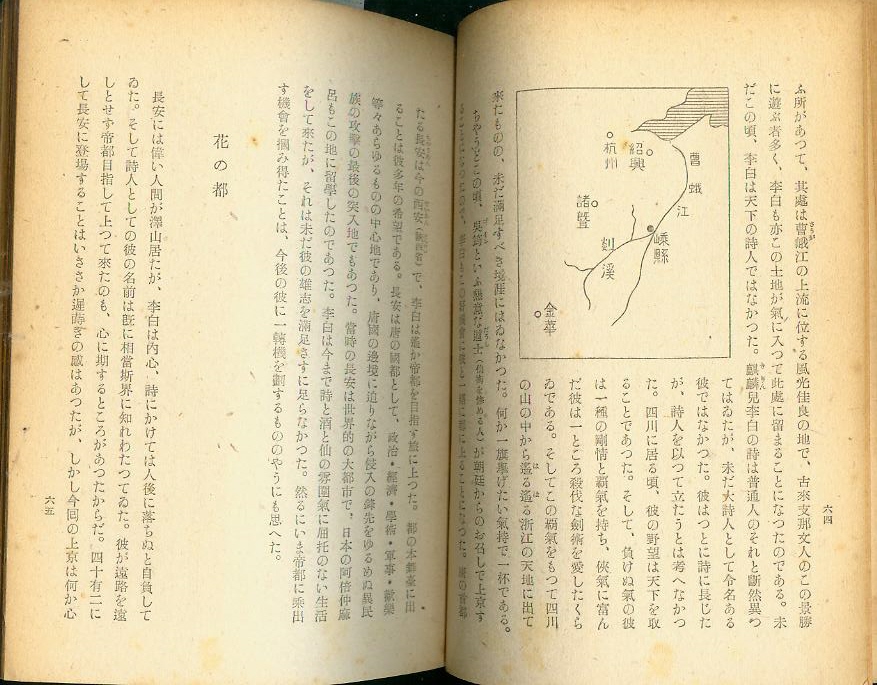 ふ所があつて、其處は曹峨江の上流に位する風光佳良の地で、古來支那文人のこの景勝
に遊ぶ者多く、李白も亦この土地が氣に入つて此處に留まることになつたのである。未
だこの頃、李白は天下の詩人ではなかつた。麒麟兒李白の詩は普通人のそれと斷然異つ
てはゐたが、未だ大詩人として令名ある
彼ではなかつた。彼はつとに詩に長じた
が、詩人を以つて立たうとは考へなかつ
た。四川に居る頃、彼の野望は天下を取
ることであつた。そして、負けぬ氣の彼
は一種の剛情と覇氣を持ち、俠氣に富ん
だ彼は一ところ殺伐な劍術を愛したくら
ゐである。そしてこの覇氣をもつて四川
の山の中から遙る遙る浙江の天地に出て
來たものの、未だ滿足すべき境涯にはゐなかつた。何か一旗擧げたい氣持で一杯である。
ちやうどこの頃、吳筠といふ懇意な道士(仙術を修める人)が朝廷からのお召しで上京す
曹娥江
紹興
杭州
諸曁
嵊縣
剡溪
金華
六四
たる長安は今の西安(陝西省)で、李白は遙か帝都を目指す旅に上つた。都の本舞臺に出
ることは幾多年の希望である。長安は唐の國都として、政治・經濟・學術・軍事・歡樂
等々あらゆるものの中心地であり、唐國の邊境に迫りながら侵入の鋒先をゆるめぬ異民
族の攻擊の最後の突入地でもあつた。當時の長安は世界的の大都市で、日本の阿倍仲麻
呂もこの地に留學したのであつた。李白は今まで詩と酒と仙の雰圍氣に屈托のない生活
をして來たが、それは未だ彼の雄志を滿足さすに足らなかつた。然るにいま帝都に乘出
す機會を摑み得たことは、今後の彼に一轉機を劃するもののやうにも思へた。
花の都
長安には偉い人間が澤山居たが、李白は內心、詩にかけては人後に落ちぬと自負して
ゐた。そして詩人としての彼の名前は旣に相當斯界に知れわたつてゐた。彼が遠路を遠
しとせず帝都目指して上つて來たのも、心に期するところがあつたからだ。四十有二に
して長安に登場することはいささか遲蒔きの感はあつたが、しかし今回の上京は何か心
六五